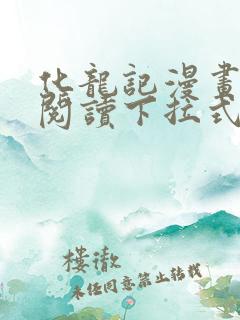 化龍記漫畫
閱讀下拉式
樓澈
未任同意禁止轉載